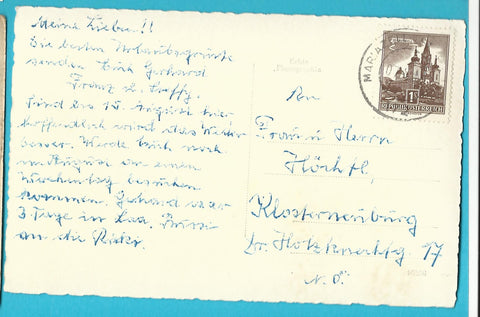 Meine Lieben!!
Die besten Urlaubsgrüsse
senden Euch Gerhard
Franz u.
Sind bis 15. August hier,
hoffentlich wird das Wetter
besser. Werde Euch noch
im August an einem
Wochentag besuchen
kommen. Gerhard war
3 Tage in Bussi
an die
Echte
Photographie
An
Frau u. Herrn
Höchtl,
Klosterneuburg
Dr. Holzknechtg. 17
N.Ö.
MARIA
REPUBLIK ÖSTERREICH